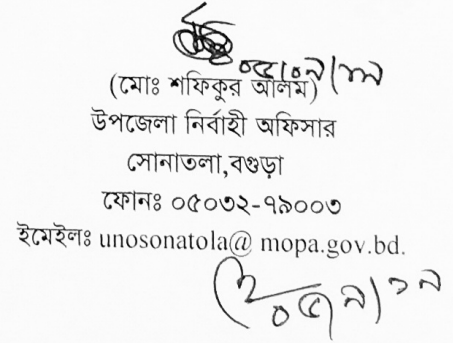 (মোঃ শফিকুর আলম)
উপজেলা নির্বাহী অফিসার
সোনাতলা,বগুড়া
ফোনঃ ০৫০৩২-৭৯০০৩
ইমেইলঃ unosonatola@ mopa.gov.bd.